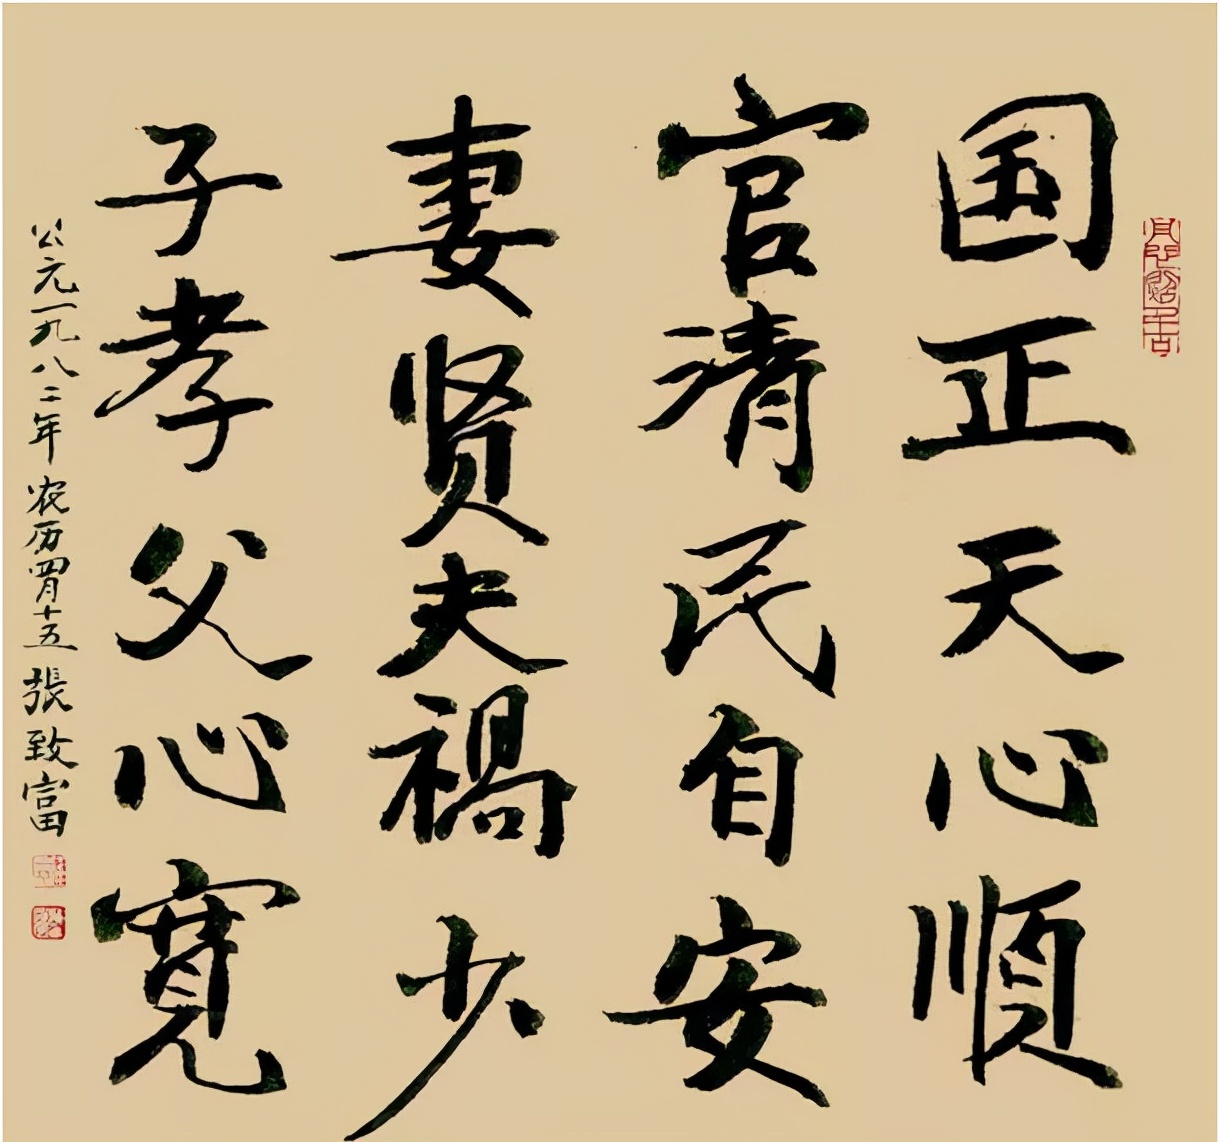 国正天心顺
官清民自安
妻贤夫祸少
子孝父心寛
公元一九八二年农历四月十五 張致富